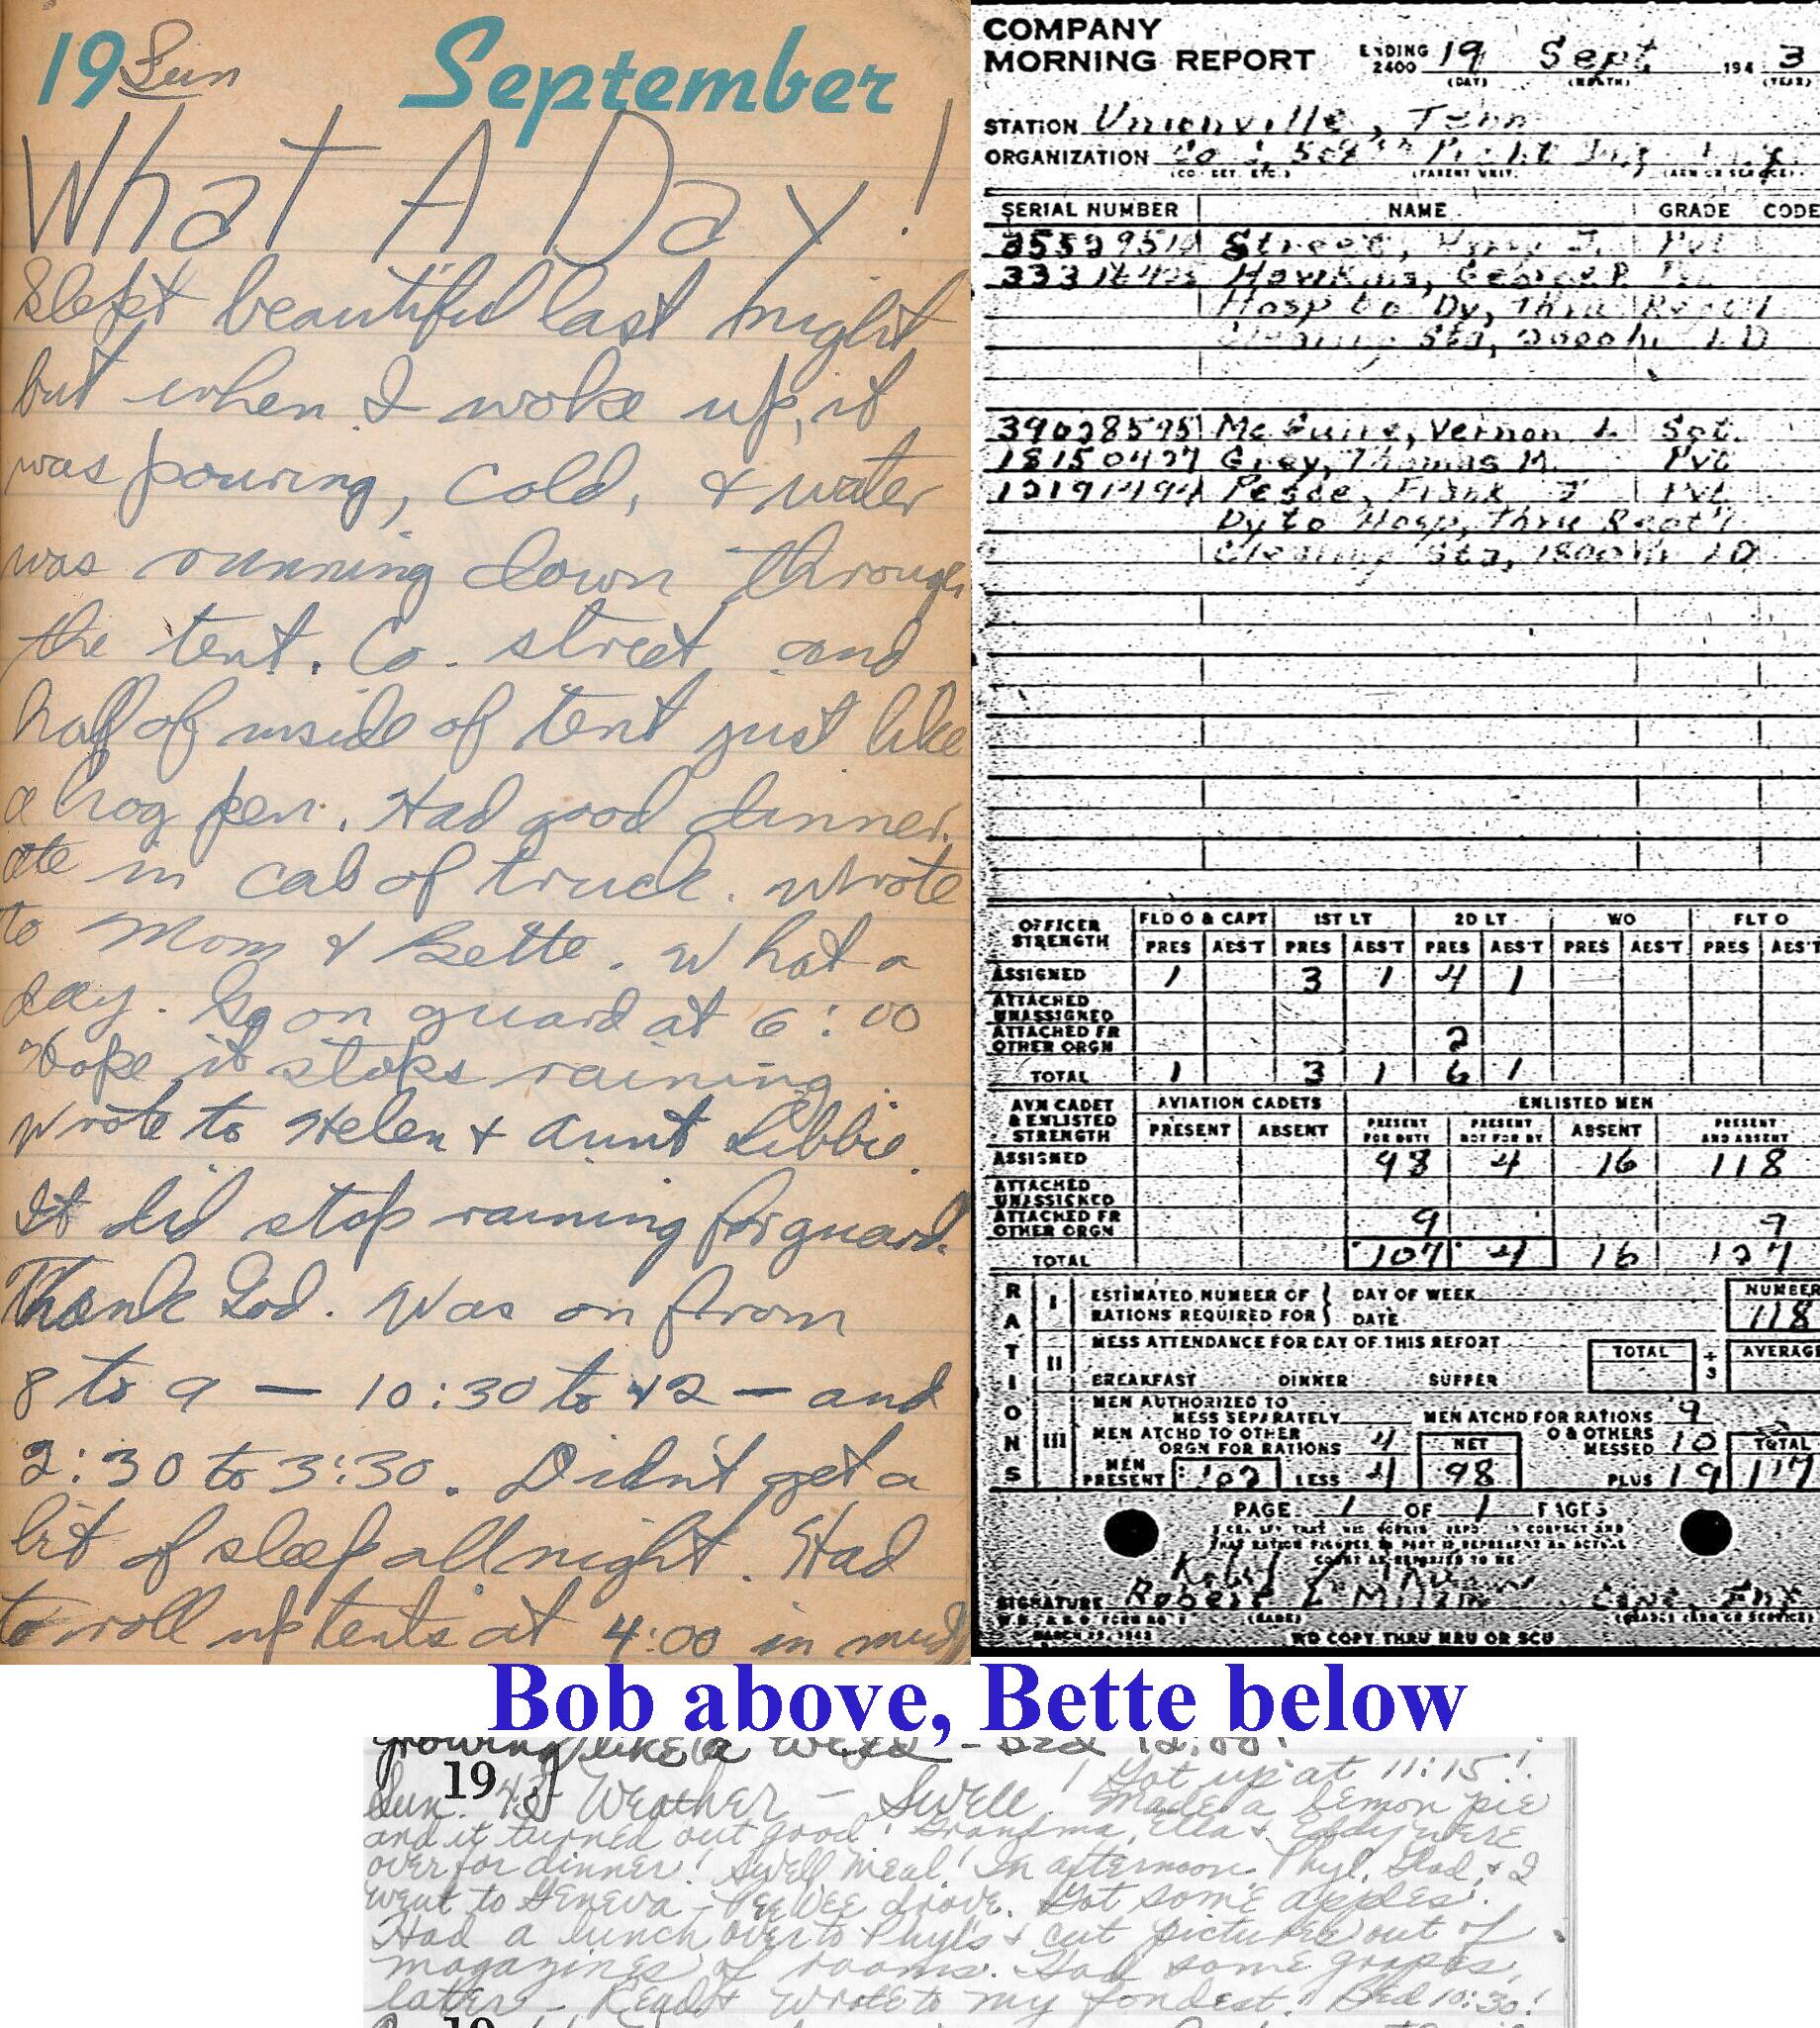 19 Sun September
What A Day!
Slept beautiful last night
but when I woke up, it
was pouring, cold, & water
was running down through
the tent. Co. street and
half of inside of tent just like
a hog pen. Had good dinner.
ate in cab of truck. Wrote
to Mom & Bette. What a
day. Go on guard at 6:00
Hope it stops raining.
Wrote to Helen & Aunt Libbie.
It did stop raining for guard.
Thank God. Was on from
8 to 9 — 10:30 to 12 — and
2:30 to 3:30. Didn't get a
bit of sleep all night. Had
to roll up tents at 4:00 in mud
COMPANY
MORNING REPORT ENDING 2400 19 Sept 194 3
(DAY) (MONTH) (YEAR)
STATION Unionville, Tenn
ORGANIZATION Co
(CO. DET. ETC.) (PARENT UNIT) (ARM OR SERVICE)
SERIAL NUMBER NAME GRADE CODE
Pvt
Hawkins, George P.
Hosp to Dy, Thru
Clearing Sta, 2000 hr LD
39028595 McGuire, Vernon L. Sgt.
18150427 Gray, Thomas M. Pvt
12191494 Frank J Pvt
Dy to Hosp, Thru
Clearing Sta, 1800 hr LD
OFFICER STRENGTH FLD O & CAPT 1ST LT 2D LT WO FLT O
PRES ABS'T PRES ABS'T PRES ABS'T PRES ABS'T PRES ABS'T
ASSIGNED 1 3 1 4 1
ATTACHED UNASSIGNED
ATTACHED FR OTHER ORGN 2
TOTAL 1 3 1 6 1
AVN CADET & ENLISTED STRENGTH AVIATION CADETS ENLISTED MEN
PRESENT ABSENT PRESENT FOR DUTY PRESENT NOT FOR DY ABSENT PRESENT AND ABSENT
ASSIGNED 98 4 16 118
ATTACHED UNASSIGNED
ATTACHED FR OTHER ORGN 9 9
TOTAL 107 4 16 127
RATIONS
I ESTIMATED NUMBER OF RATIONS REQUIRED FOR DAY OF WEEK DATE NUMBER 118
II MESS ATTENDANCE FOR DAY OF THIS REPORT TOTAL ÷ 3 AVERAGE
BREAKFAST DINNER SUPPER
III MEN AUTHORIZED TO MESS SEPARATELY MEN ATCHD FOR RATIONS 9
MEN ATCHD TO OTHER ORGN FOR RATIONS 4 NET OTHERS MESSED 10 TOTAL
MEN PRESENT 102 LESS 4 98 PLUS 19 117
PAGE 1 OF 1 PAGES
I CERTIFY THAT THIS MORNING REPORT IS CORRECT AND
THAT RATION FIGURES IN PART III REPRESENT AN ACTUAL
COUNT AS REPORTED TO ME
SIGNATURE Robert L
(NAME) (GRADE) (ARM OR SERVICE)
MARCH 29, 1943 WD COPY THRU MRU OR SCU
Bob above, Bette below
growing like a weed - Bed 12:00!
1943
Sun. Weather - Swell! Got up at 11:15!
Made a lemon pie
and it turned out good! Grandma, Ella & Eddy were
over for dinner! Swell meal! In afternoon Phyl, Glad, & I
went to Geneva - PeeWee drove. Got some apples.
Had a lunch over to Phyl's & cut pictures out of
magazines of rooms. Had some grapes,
later - Read & wrote to my fondest! Bed 10:30!
19